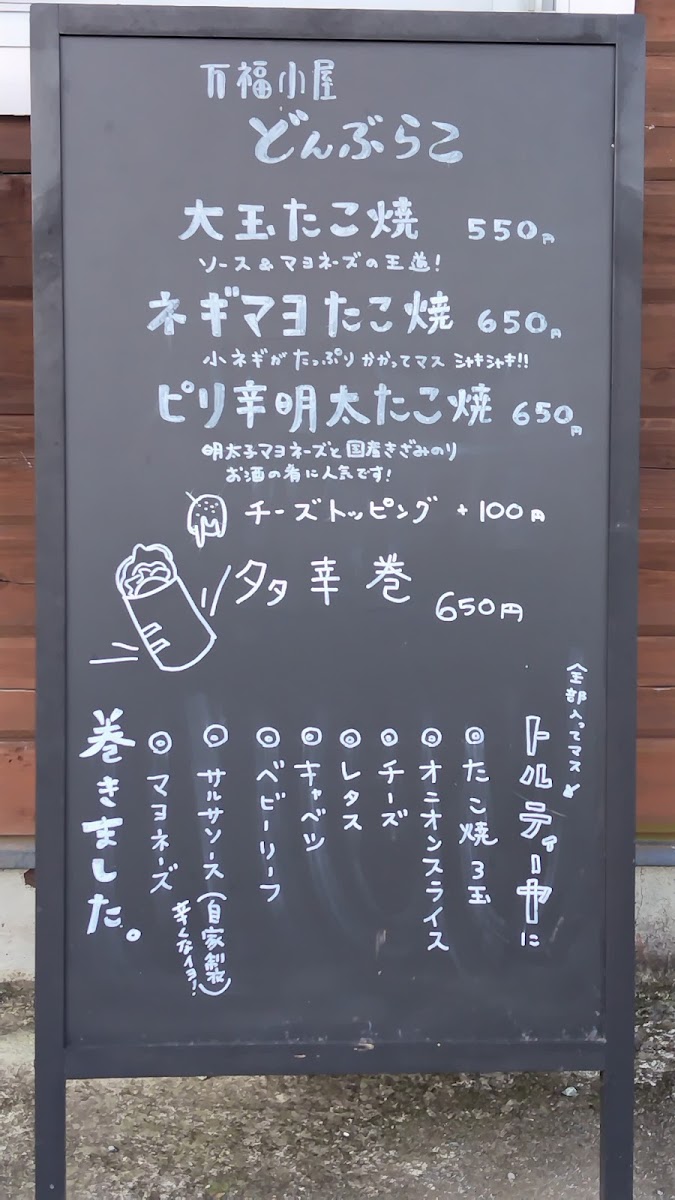 万福小屋
どんぶらこ
大玉たこ焼 550円
ソース&マヨネーズの王道!
ネギマヨたこ焼 650円
小ネギがたっぷりかかってマス シャキシャキ!!
ピリ辛明太たこ焼 650円
明太子マヨネーズと国産きざみのり
お酒の肴に人気です!
チーズトッピング +100円
多幸巻 650円
全部入ってマス
トルティーヤに
◎たこ焼3玉
◎オニオンスライス
◎チーズ
◎レタス
◎キャベツ
◎ベビーリーフ
◎サルサソース(自家製)
辛くなイヨ!
◎マヨネーズ
巻きました。